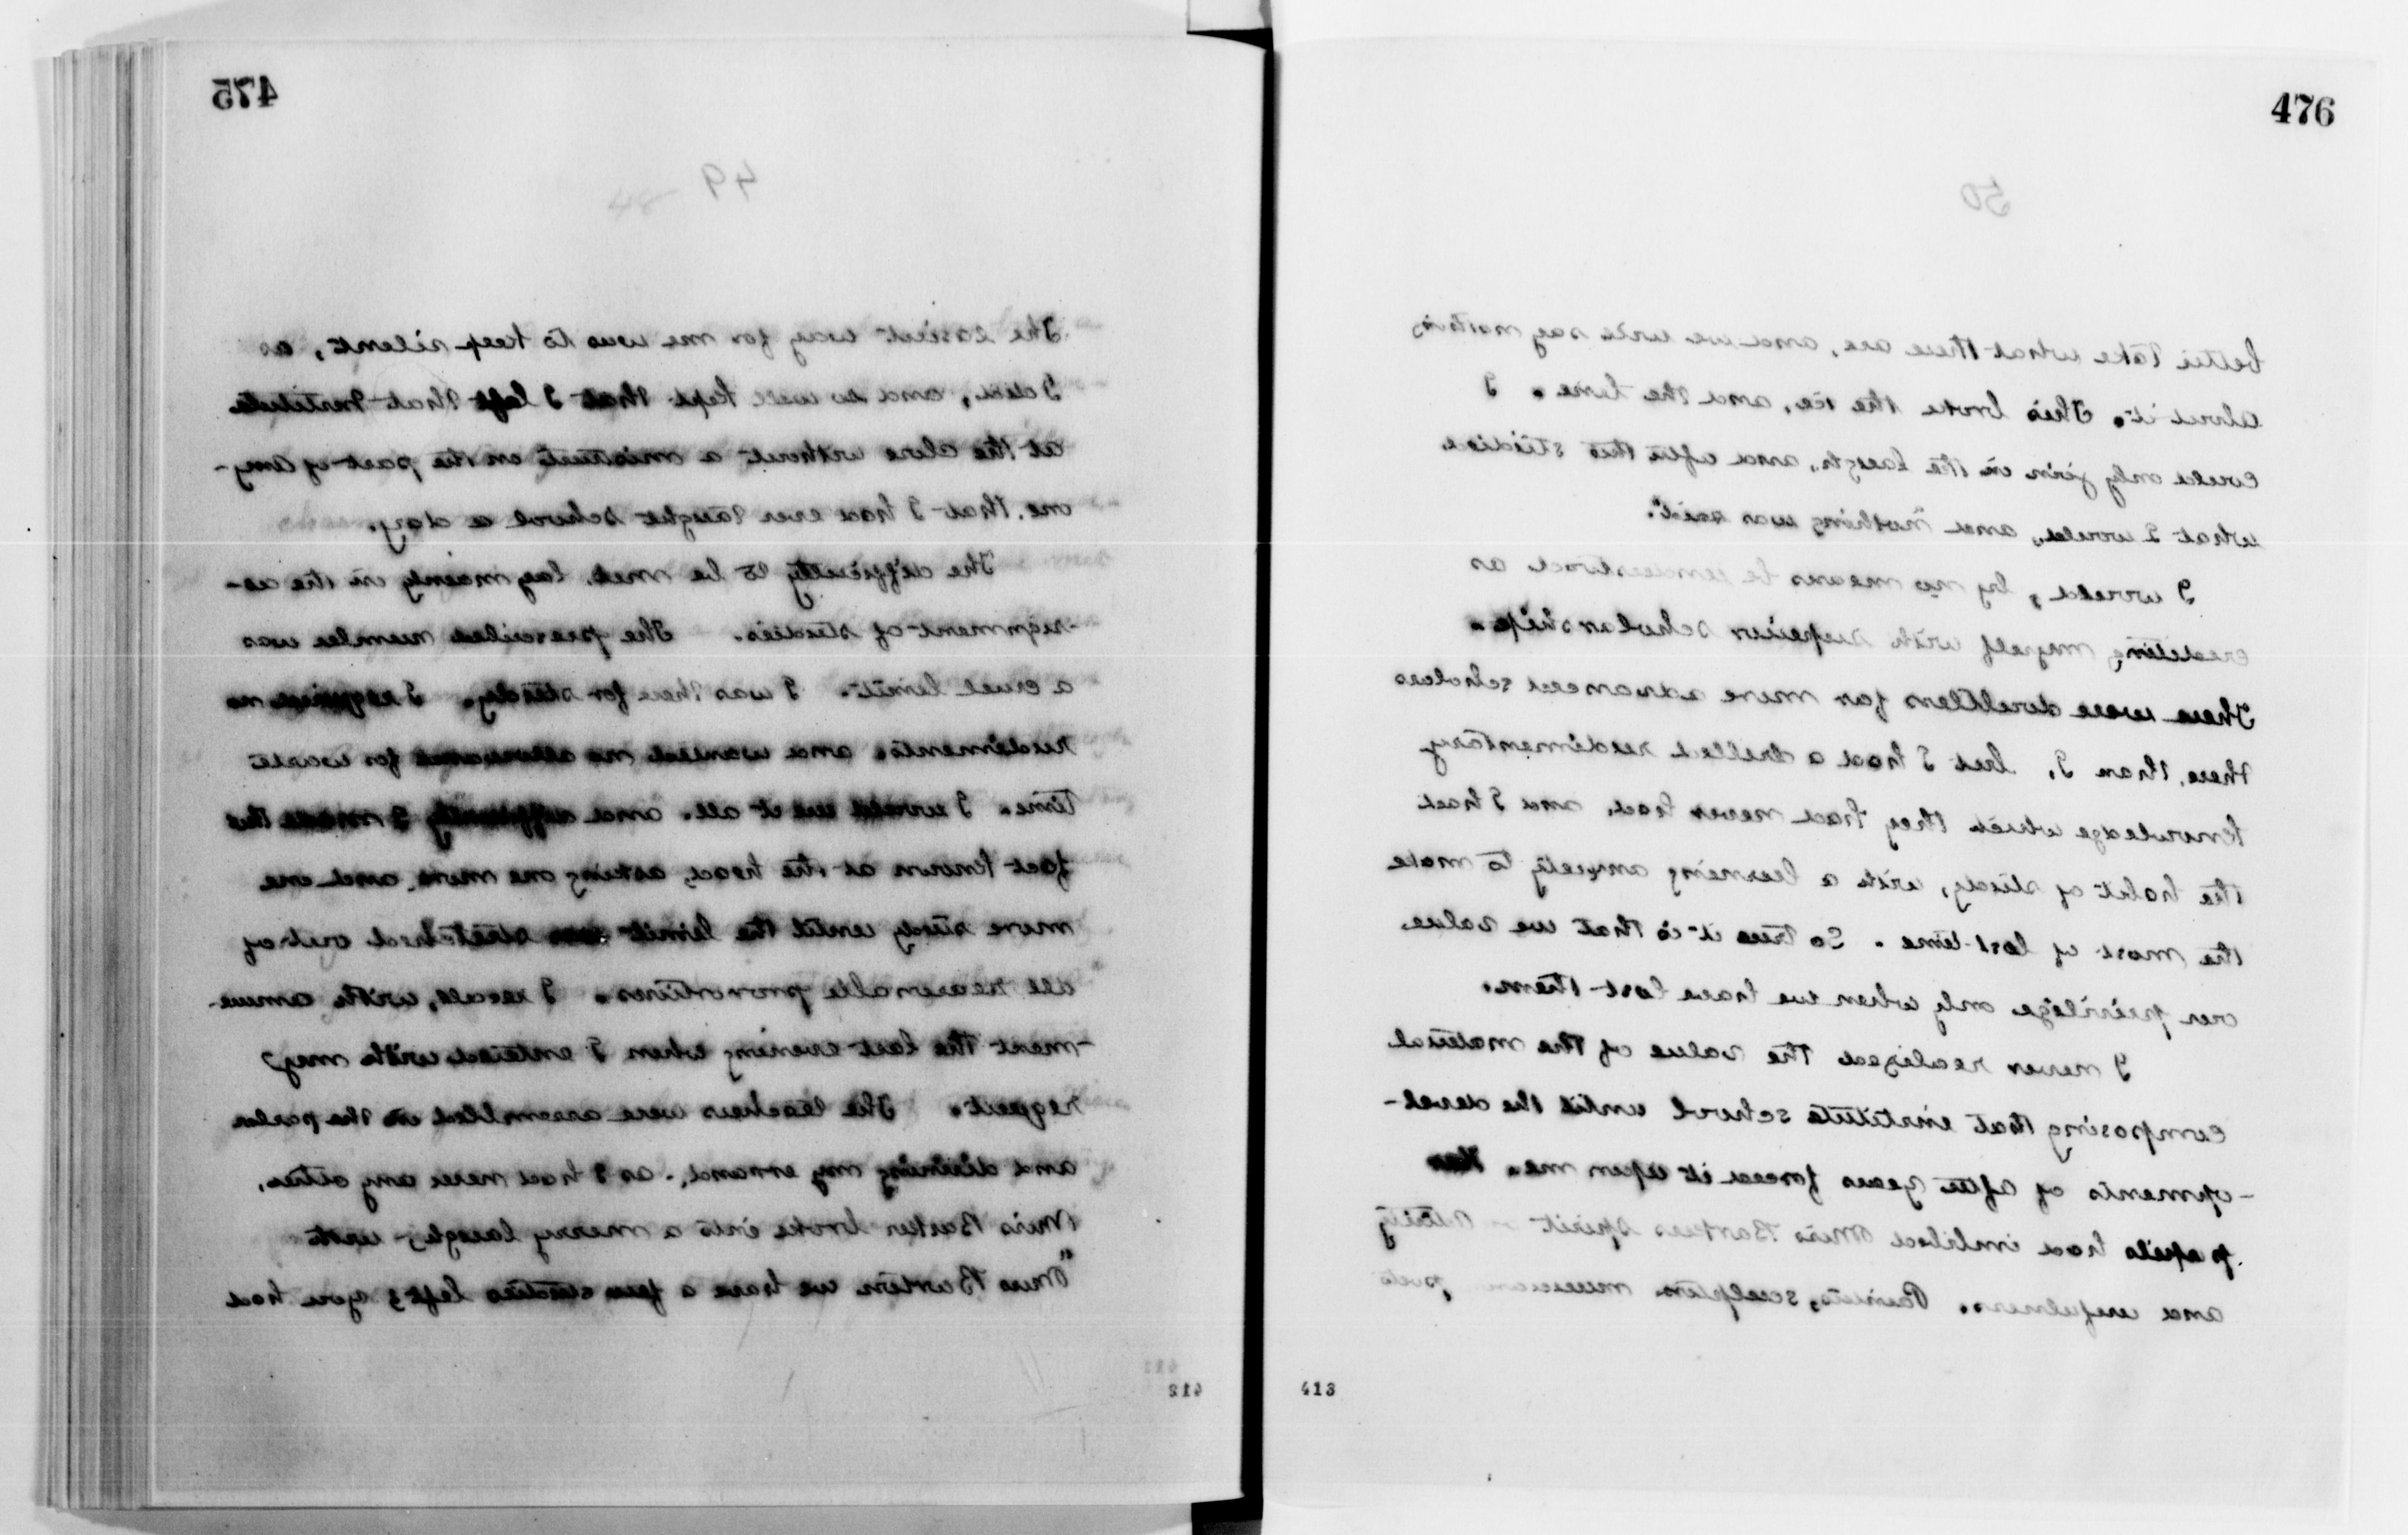 475
49
The easiest way for me was to keep silent, as
I did, and so well kept that I left that Institute
at the close without a mistrust on the part of any-
one, that I had ever taught school a day.
The difficulty to be met, lay mainly in the as-
-signment of studies. The prescribed number was
a cruel limit. I was there for study. I required no
rudiments, and wanted no allowance for waste
time. I would use it all. and diffidently I made this
fact known at the head, asking one more and one
more study until the limit was stretched out of
all reasonable proportions. I recall, with amuse-
-ment the last evening when I entered with my
request. The teachers were assembled in the parlor
and divining my errand, as I had never any other,
Miss Barker broke into a merry laugh, with
"Miss Barton we have a few studies left; you had
412
476
50
better take what there are, and we will say nothing
about it. This broke the ice, and the line. I
could only join in the laugh, and after this studied
what I would, and "nothing was said".
I would, by no means be understood as
crediting myself with superior scholarship.
There were doubtless far more advanced scholars
there, than I, but I had a drilled rudimentary
knowledge which they had never had, and I had
the habit of study, with a burning anxiety to make
the most of lost time. So true it is that we value
our privilege only when we have lost them.
I never realized the value of the material
composing that institute school until the devel-
-opments of after years forced it upon me. Her
pupils had imbibed Miss Barkers spirit
and usefulness. Painters, sculptors
413